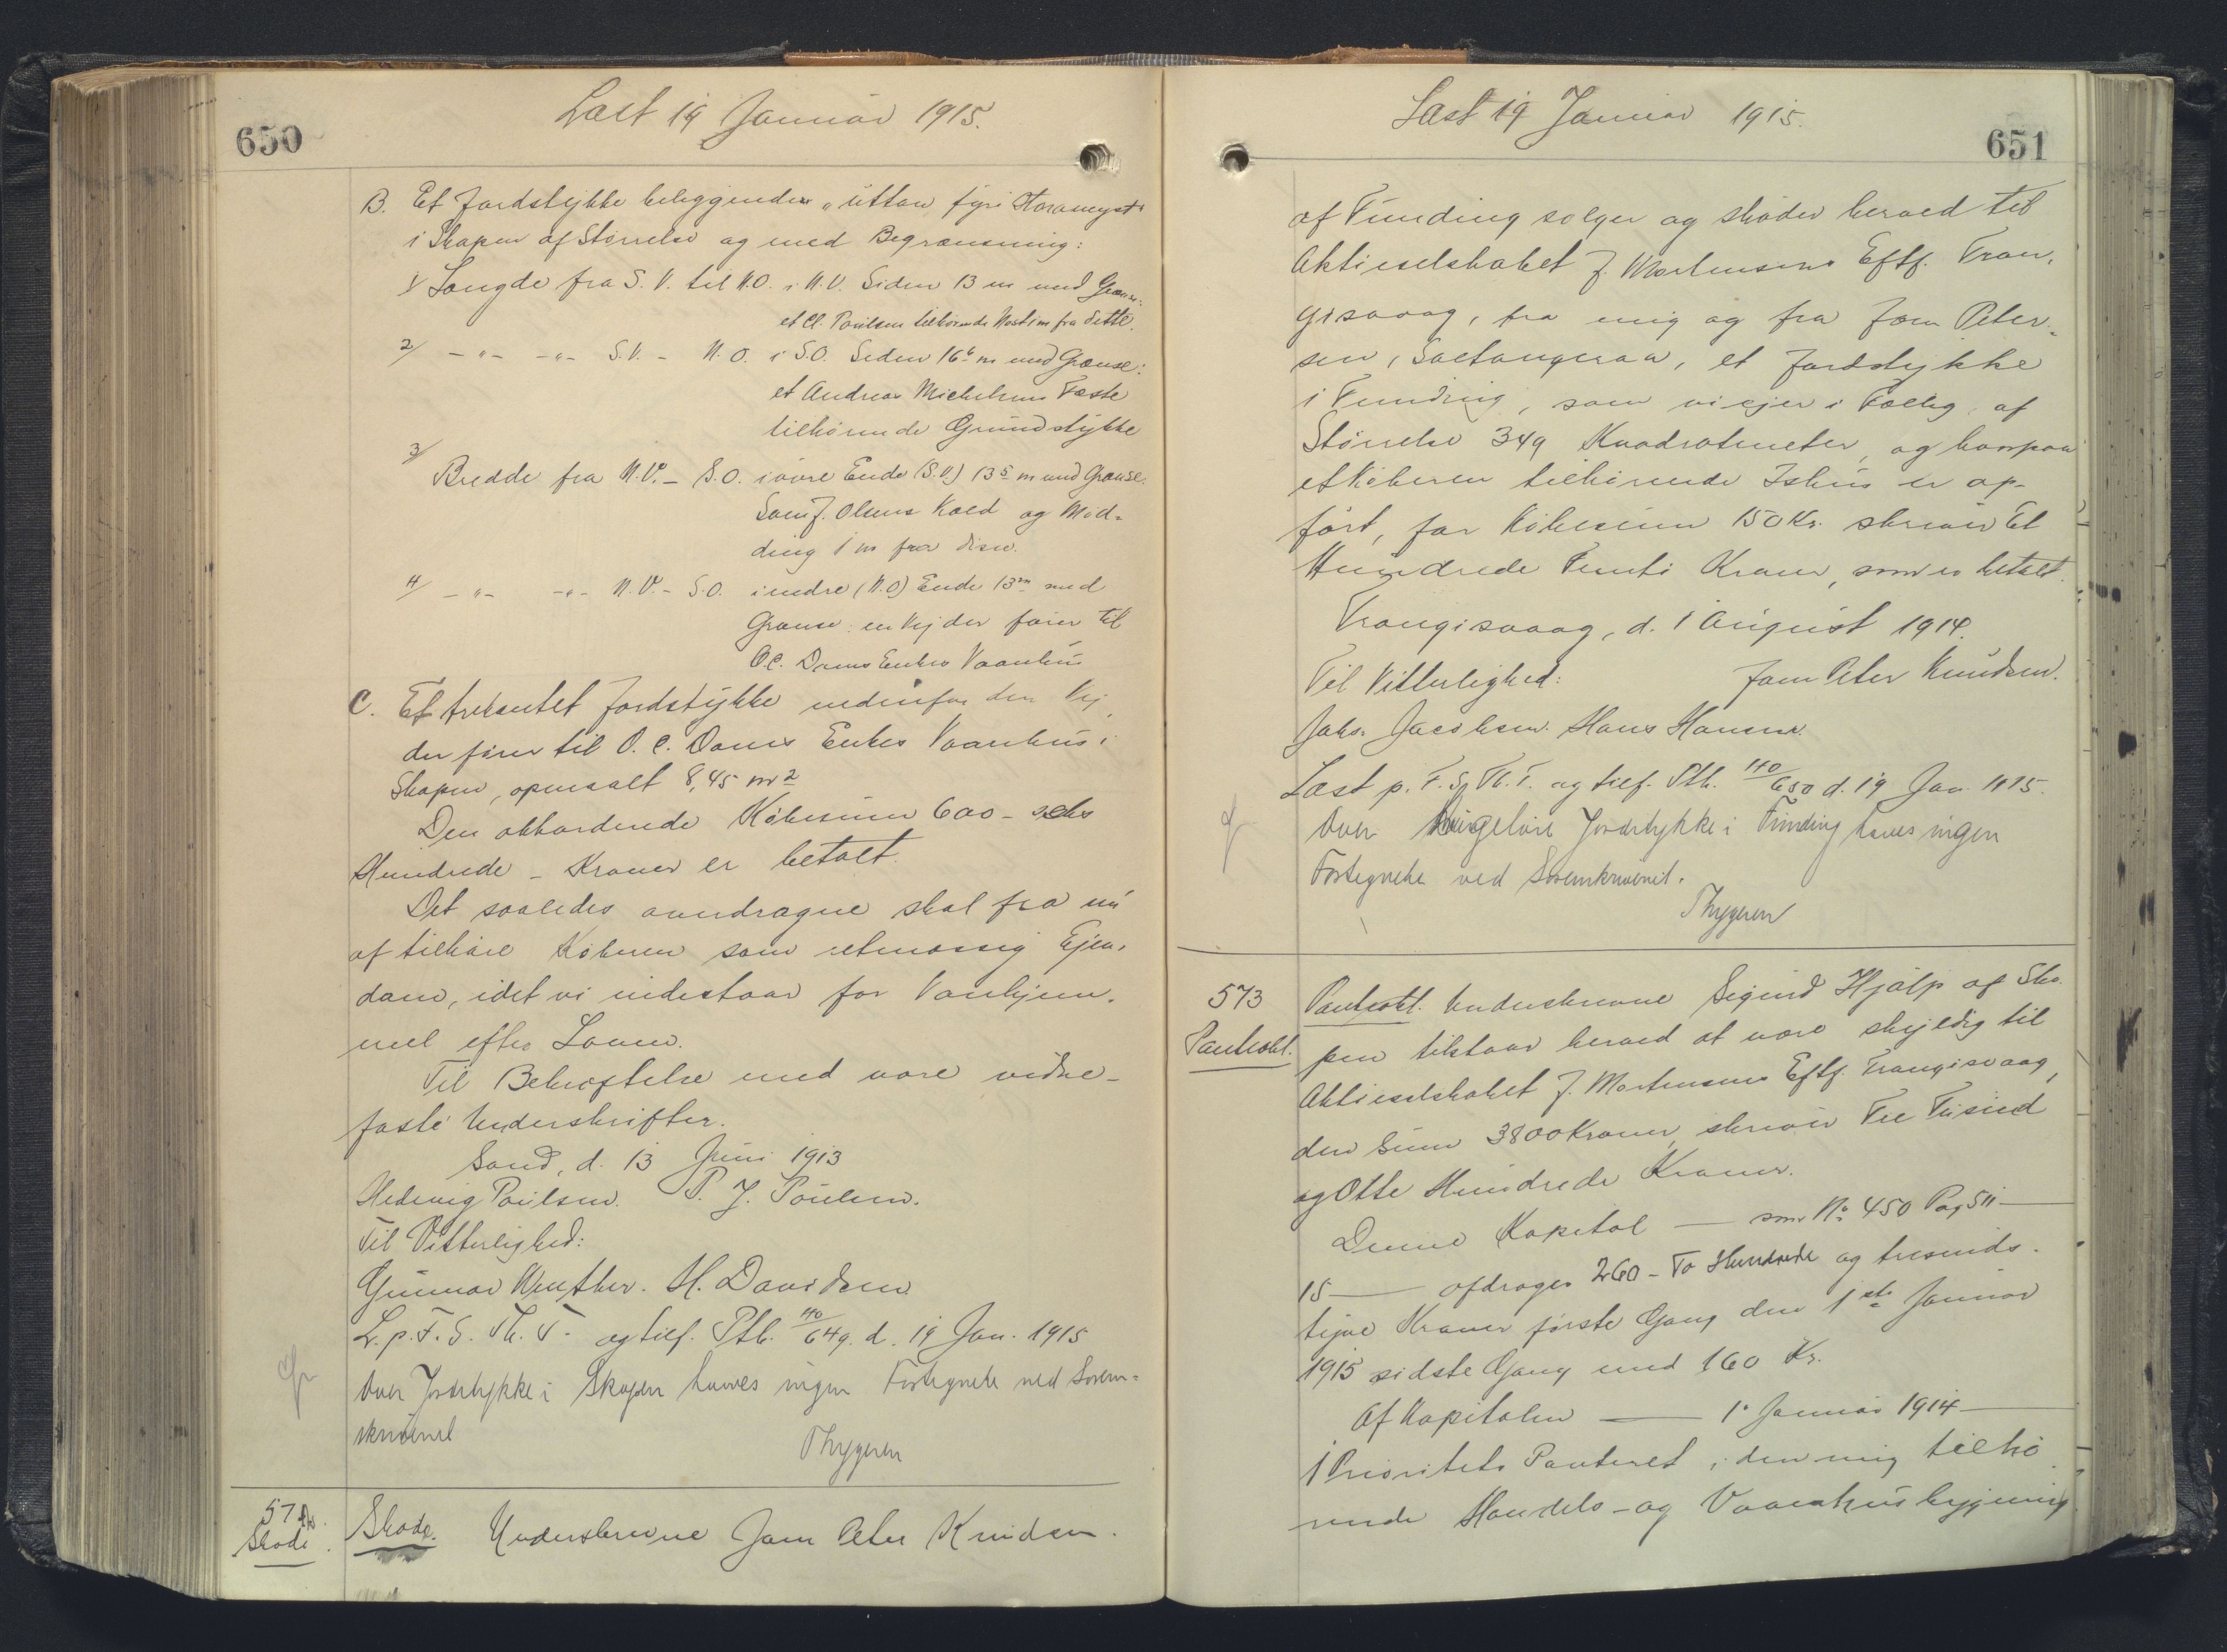 650
Læst 19 Januar 1915.
B. Et Jordstykke beliggende "uttan fyri Storamyst"
i Skapen af Størrelse og med Begrænsning:
1/ Længde fra S.V. til N.O. i N.V. Siden 13 m med Grænse:
et Cl. Poulsen tilhørende Nost 1 m fra dette.
2/ -"- -"- S.V. - N.O. i S.O. Siden 16 m med Grænse:
et Andreas Michelsens Fæste
tilhørende Grundstykke
3/
Bredde fra N.V. - S.O. i øvre Ende (S.V.) 13 5 m med Grænse.
J. Olsens Kaed og Mød-
ding 1 m fra disse.
4/ -"- -"- N.V. - S.O. i nedre (N.O) Ende 13 m med
Grænse: en Vej der fører til
O.C. Dams Enkes Vaanhus
C. Et trekantet Jordstykke nedenfor den Vej,
der fører til O.C. Dams Enkes Vaanhus i
Skapen, opmaalt 8,45 m2
Den akkorderede Købesum 600 - seks
Hundrede - Kroner er betalt.
Det saaledes overdragne skal fra nu
af tilhøre Køberen som retmæssig Ejen-
dom, idet vi indestaar for Vanhjem-
mel efter Loven.
Til Bekræftelse med vore vidne-
faste Underskrifter.
Sand, d. 13 Juni 1913
Hedevig Poulsen. P. J. Poulsen.
Til Vitterlighed:
Gunnar Winther. H. Davidsen
L. p. F. S. Th. T. og tilf. Ptb. 40/649. d. 19 Jan. 1915
Over Jordstykke i Skapen haves ingen Fortegnelse ved Soren-
skriveriet
Thygesen
572
Skøde.
Skøde. Underskrevne Joen Peter Knudsen.
651
Læst 19 Januar 1915.
af Funding sælger og skøder herved til
Aktieselskabet J. Mortensens Eftf. Tran-
gisvaag, fra mig og fra Joen Peter-
sen, Saltangeraa, et Jordstykke
i Funding, som vi ejer i Fællig, af
Størrelse 349 Kvadratmeter, og hvorpaa
et Køberen tilhørende Ishus er op-
ført, for Købesum 150 Kr. skriver Et
Hundrede Femti Kroner, som er betalt.
Trangisvaag, d. 1 August 1914.
Til Vitterlighed: Joen Peter Knudsen.
Johs. Jacobsen. Hans Hansen.
Læst p. F. S. Th. T. og tilf. Ptb. 40/650 d. 19 Jan. 1915.
Over Jordstykke i Funding haves ingen
Fortegnelse ved Sorenskriveriet.
Thygesen
573
Panteobl.
Panteobl. Underskrevne Sigurd Hjálp af Ska-
pen tilstaar herved at være skyldig til
Aktieselskabet J. Mortensens Eftf. Trangisvaag,
den Sum 3800 Kroner, skriver Tre Tusind
og Otte Hundrede Kroner.
Denne Kapital — som No 450 Pag 511 —
15 — afdrages 260 - To Hundrede og tresinds-
tyve Kroner første Gang den 1ste Januar
1915 sidste Gang med 160 Kr.
Af Kapitalen — 1. Januar 1914 —
1 Prioritets Panteret i den mig tilhø-
rende Handels- og Vaanhusbygning